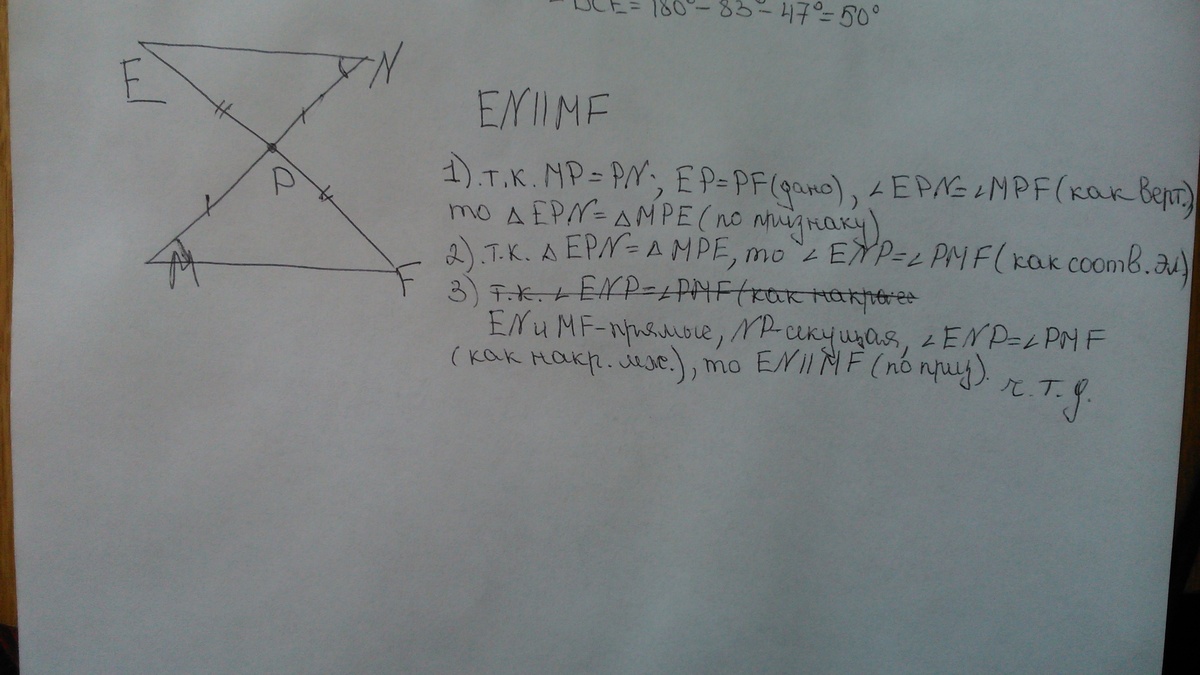 DCE = 180° - 83° - 47° = 50°
E
N
P
M
F
EN||MF
1). т.к. MP = PN; EP = PF (дано), ∠EPN = ∠MPF (как верт.),
то △EPN = △MPE (по признаку)
2). т.к. △EPN = △MPE, то ∠ENP = ∠PMF (как соотв. эл)
3) т.к. ∠ENP = ∠PMF (как накр
EN и MF - прямые, NP - секущая, ∠ENP = ∠PMF
(как накр. леж.), то EN||MF (по приз).
ч.т.д.